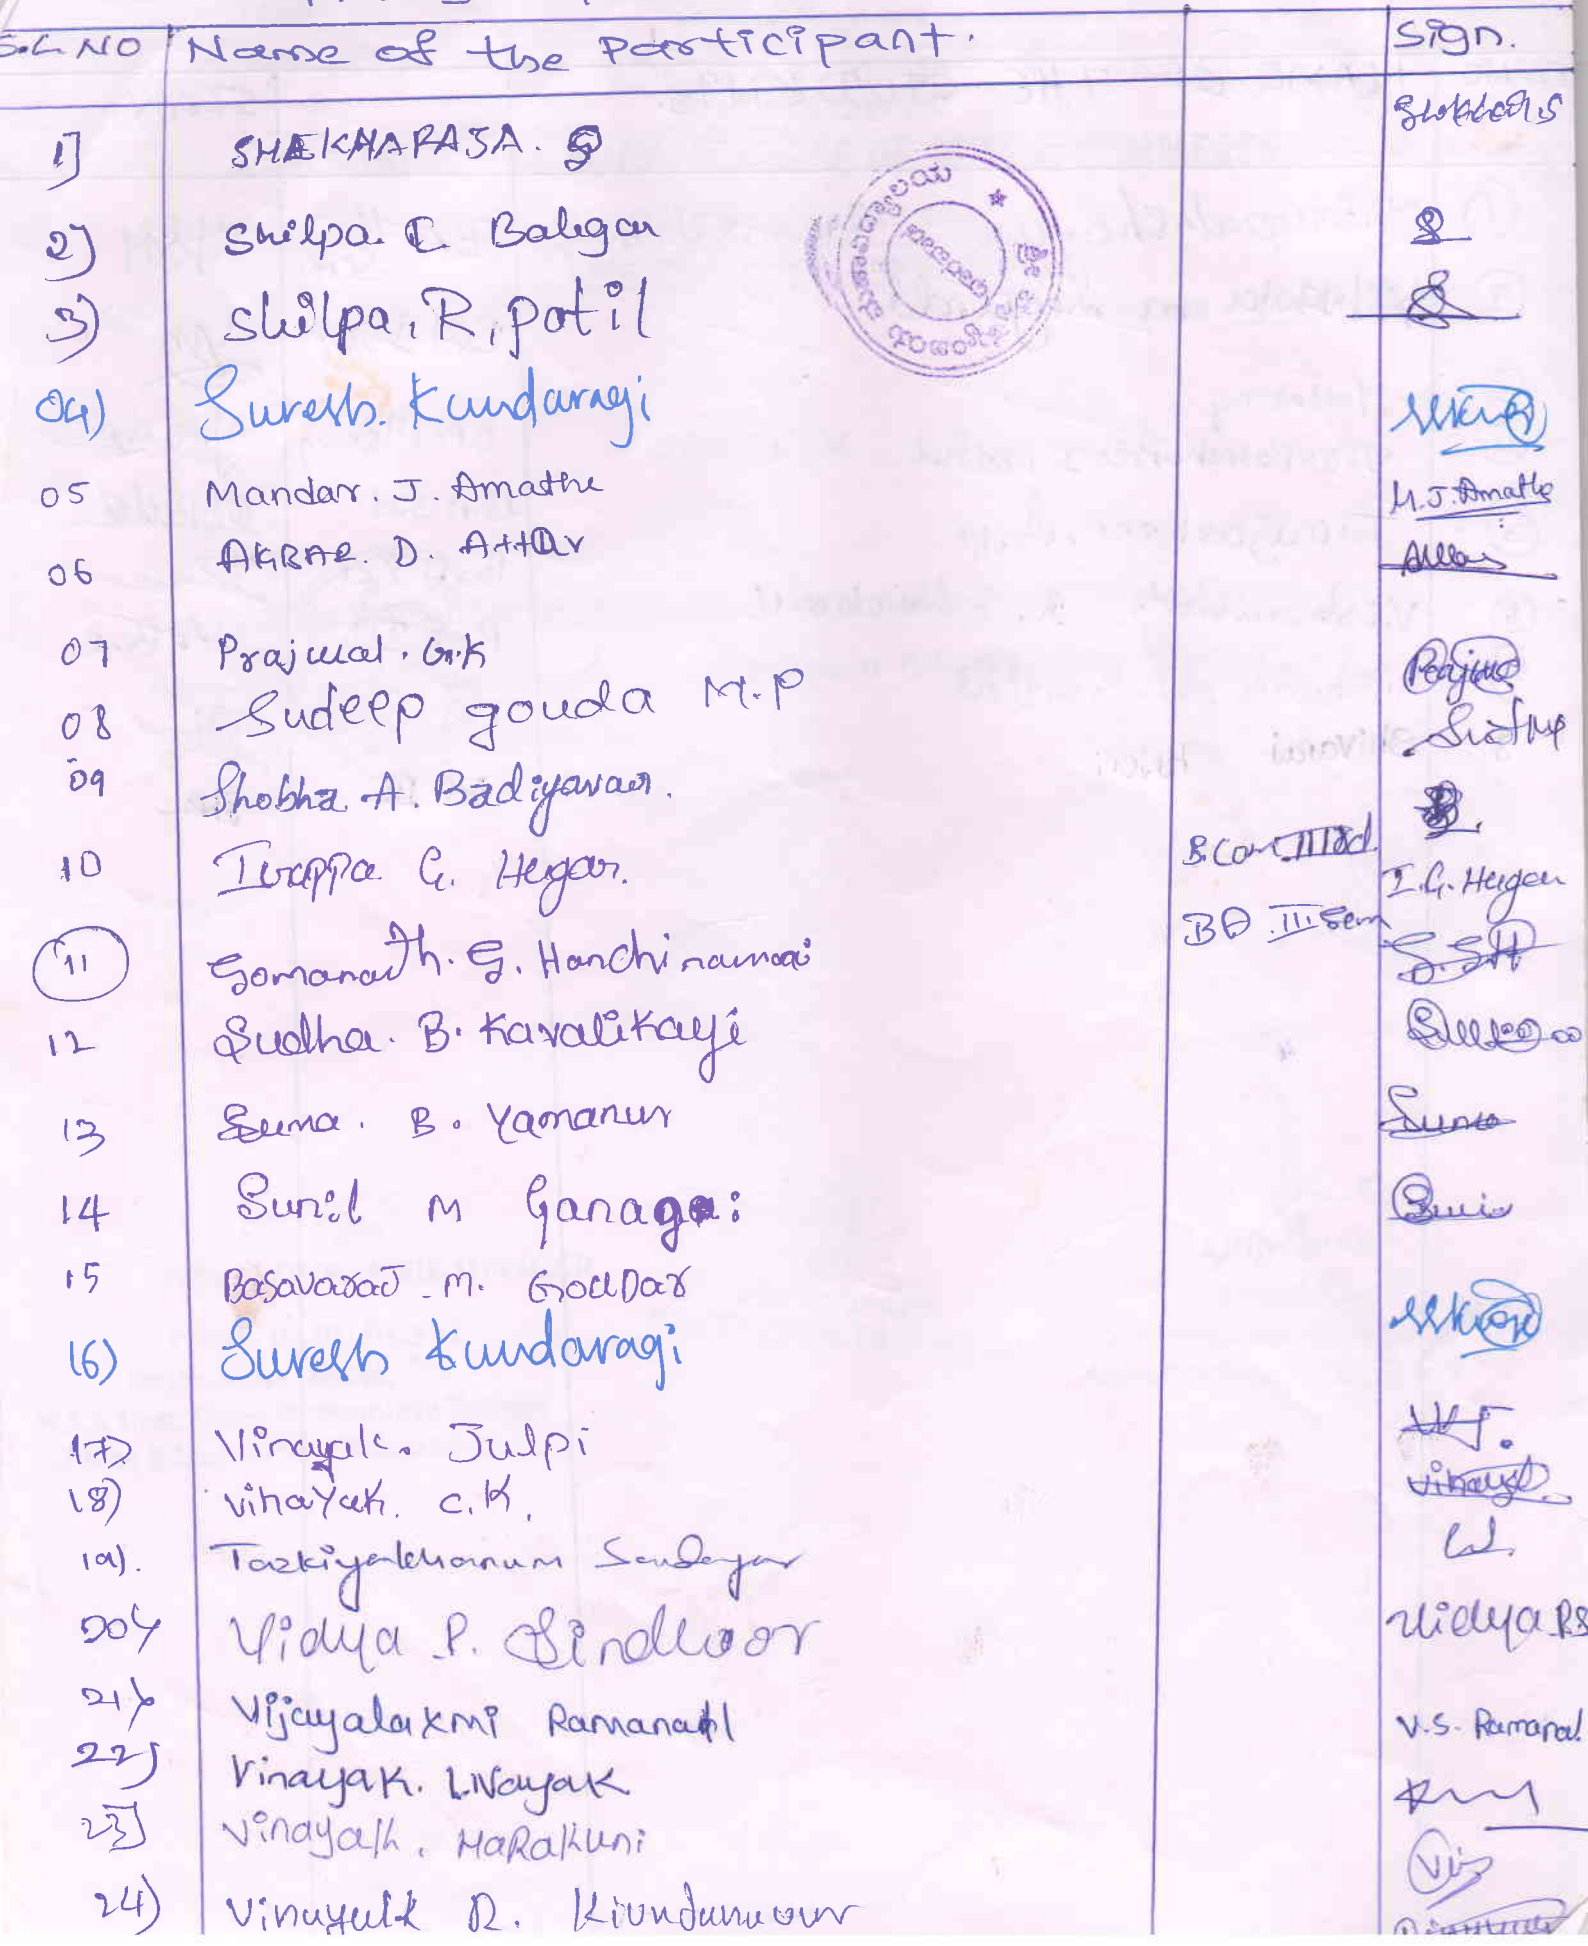 S.L NO Name of the Participant. Sign.
1] SHEKHARAJA. S
2) Shilpa. C. Baligar
3) Shilpa. R. patil
04) Suresh. Kundaragi
05 Mandar. J. Amathe M.J. Amathe
06 AKBAR. D. Attar
07 Prajwal. G.K
08 Sudeep gouda M.P
09 Shobha. A. Badiyavar.
10 Irappa G. Hugar. B.Com IIIrd. I.G. Hugar
11 Somanath. G. Hanchinamani BA III Sem
12 Sudha. B. Kavalikayi
13 Suma. B. Yamanur Suma
14 Sunil M Ganagi
15 Basavaraj. M. GouDar
16) Suresh Kundaragi
17) Vinayak. Julpi
18) vinayak. C.K. vinayk
19). Tazkiyakhanum Soudagar
20) Vidya P. Sindhoor Vidya P.S
21) Vijayalaxmi Ramanal V.S. Ramanal
22) Vinayak. L. Nayak
23] Vinayak. MaRakuni
24) Vinayak R.
ಶ್ರೀ ಮಹಾವಿದ್ಯಾಲಯ